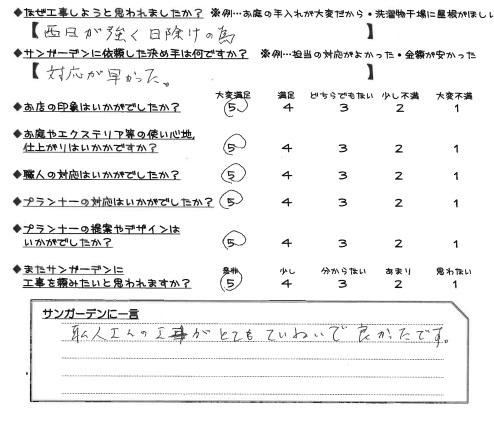 ◆なぜ工事しようと思われましたか？ ※例…お庭の手入れが大変だから・洗濯物干場に屋根がほしい
【西日が強く日除けの為 】
◆サンガーデンに依頼した決め手は何ですか？ ※例…担当の対応がよかった・金額が安かった
【対応が早かった。 】
大変満足 満足 どちらでもない 少し不満 大変不満
◆お店の印象はいかがでしたか？ 5 4 3 2 1
◆お庭やエクステリア等の使い心地,
仕上がりはいかがですか？ 5 4 3 2 1
◆職人の対応はいかがでしたか？ 5 4 3 2 1
◆プランナーの対応はいかがでしたか？ 5 4 3 2 1
◆プランナーの提案やデザインは
いかがでしたか？ 5 4 3 2 1
◆またサンガーデンに 是非 少し 分からない あまり 思わない
工事を頼みたいと思われますか？ 5 4 3 2 1
サンガーデンに一言
職人さんの工事がとてもていねいで良かったです。